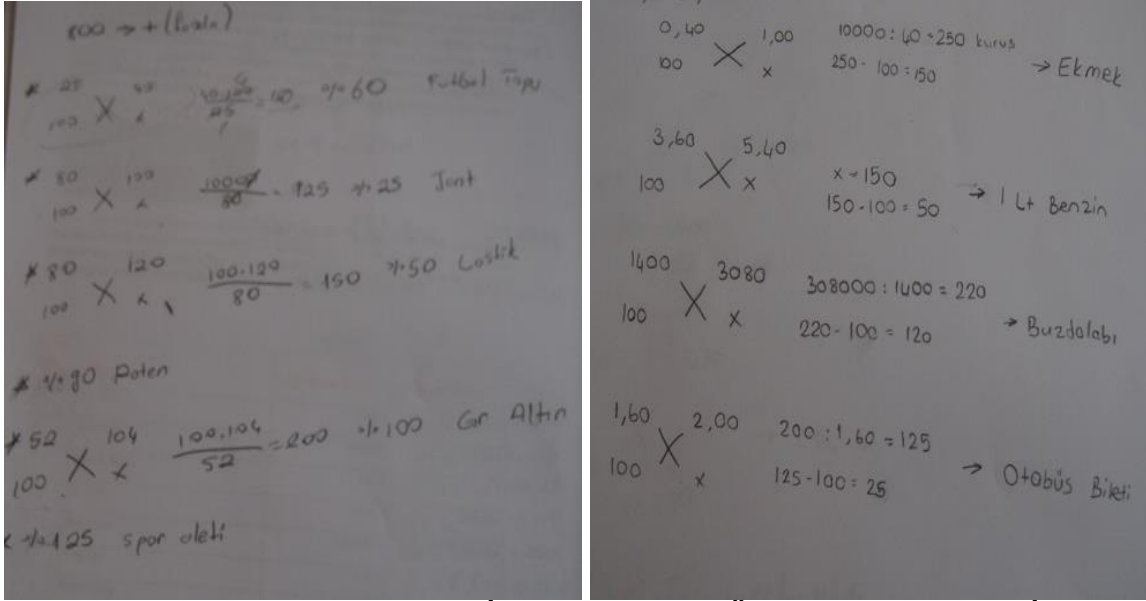 800 → + (fazla)
* 25
100 X x
= 160 %60 Futbol Topu
* 80 100
100 X x 10000/80 = 125 %25 Jant
* 80 120
100 X x 100.120/80 = 150 %50 Lastik
* %90 Paten
* 52 104
100 X x 100.104/52 = 200 %100 Gr Altın
%125 spor aleti
0,40 1,00 10000:40=250 kuruş
100 X x 250-100=150 → Ekmek
3,60 5,40
100 X x x=150
150-100=50 → 1 Lt Benzin
1400 3080 308000:1400=220
100 X x 220-100=120 → Buzdolabı
1,60 2,00 200:1,60=125
100 X x 125-100=25 → Otobüs Bileti